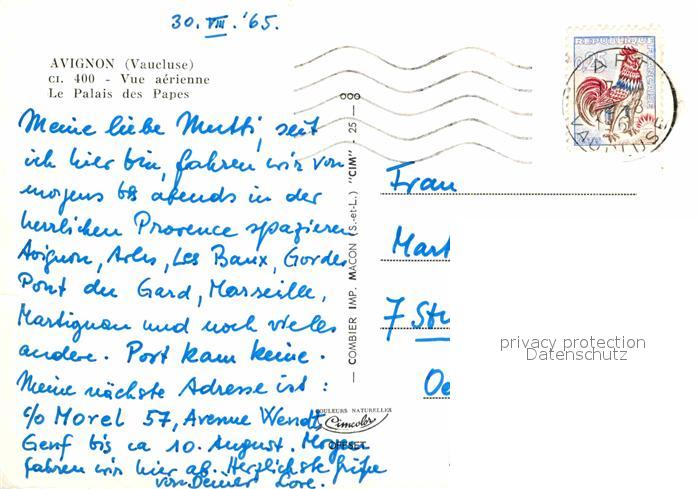 30. VII. '65.
AVIGNON (Vaucluse)
CI. 400 - Vue aérienne
Le Palais des Papes
Meine liebe Mutti, seit
ich hier bin, fahren wir von
morgens bis abends in der
herrlichen Provence spazieren
Avignon, Arles, Les Baux, Gordes
Pont du Gard, Marseille,
Martignan und noch vieles
andere. Post kam keine.
Meine nächste Adresse ist:
c/o Morel 57, Avenue Wendt,
Genf bis ca 10. August. Morgen
fahren wir hier ab. Herzlichste Grüße
von Deiner Lore.
COMBIER IMP. MACON (S.-et-L.) "CIM" - 25 -
COULEURS NATURELLES
Cimcolor
OFFSET
VAUCLUSE
Frau
Mart
7 Stu
Oe
privacy protection
Datenschutz